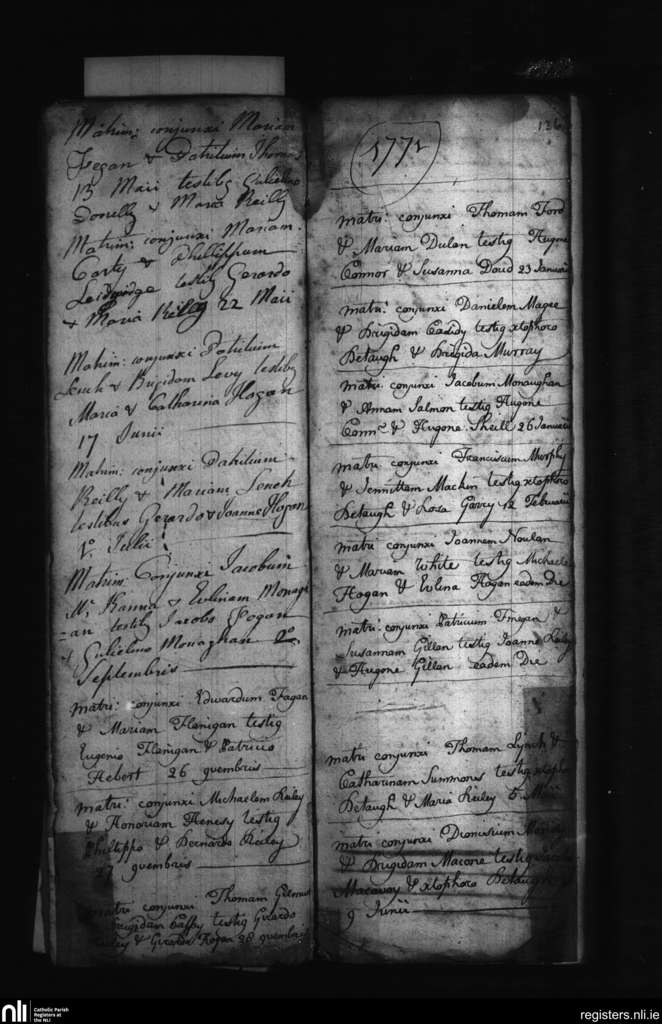 Matrim: conjunxi Mariam
Fegan & Patritium Thomas
13 Maii testibg Gulielmo
Donelly & Maria Reilly
Matrim: conjunxi Mariam
Carty & Phillippum
Ledwidge testibg Gerardo
& Maria Reilly 22 Maii
Matrim: conjunxi Patritium
& Brigidam Levy testibg
Maria & Catharina Hagan
17 Junii
Matrim: conjunxi Patritium
Reilly & Mariam
testibus Gerardo & Joanne Hagan
1o. Julii
Matrim: Conjunxi Jacobum
Mc Kanna & Evlinam Monagh
=an testibg Jacobo Fogan
& Gulielmo Monaghan 2o
Septembris
matri: conjunxi Edwardum Fagan
& Mariam Flanigan testig
Eugenio Flanigan & Patricio
Hebert 26 9vembris
matri: conjunxi Michaelem Reiley
& Honoriam Henesy testig
Philippo & Bernardo Reiley
27 9vembris
matri: conjunxi Thomam
Brigidam testig Gerardo
Reiley & Hagan 28 9vembris
1772
136
matri: conjunxi Thomam Ford
& Mariam Dulan testig Hugone
Connor & Susanna Doud 23 Januarii
matri: conjunxi Danielem Magee
& Brigidam Casidy testig xtophoro
Betaugh & Brigida Murray
matri: conjunxi Jacobum Monaughan
& Annam Salmon testig Hugone
Connr & Hugone Sheill 26 Januarii
matri: conjunxi Franciscum Murphy
& Jennittam Machin testig xtophoro
Betaugh & Rosa Garry 12 Februarii
matri: conjunxi Joannem Noulan
& Mariam White testig Michaele
Hagan & Evlina Hagan eadem Die
matri: conjunxi Patricium Finegan &
Susannam Gillan testig Joanne
& Hugone Gillan eadem Die
matri: conjunxi Thomam Lynch &
Catharinam Summons testig xtophoro
Betaugh & Maria Reiley 5 Maii
matri: conjunxi Dionisium
& Brigidam Macone testig
Macavoy & xtophoro Betaugh
9 Junii
nli
Catholic Parish
Registers at
the NLI
registers.nli.ie